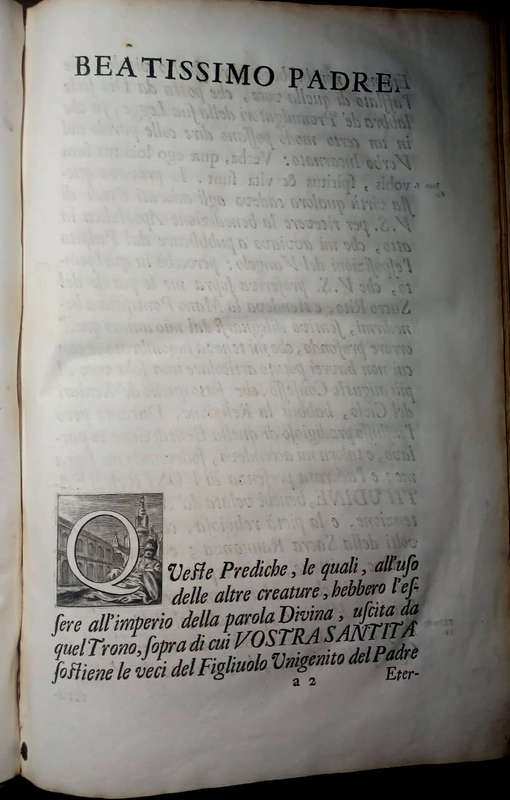 BEATISSIMO PADRE.
QVeste Prediche, le quali, all'uso
delle altre creature, hebbero l'es-
sere all'imperio della parola Divina, uscita da
quel Trono, sopra di cui VOSTRA SANTITÀ
sostiene le veci del Figliuolo Unigenito del Padre
a 2
Eter-